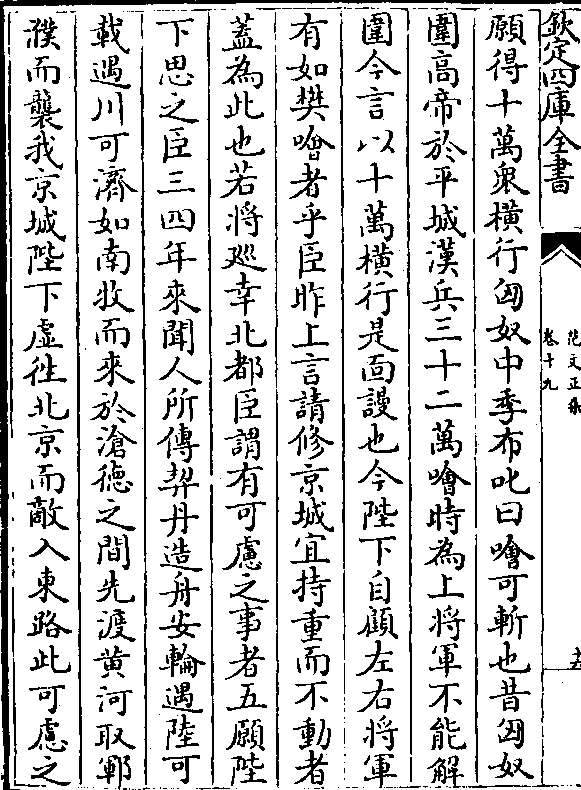 欽定四庫全書
范文正集
卷十九
願得十萬衆橫行匈奴中季布叱曰噲可斬也昔匈奴
圍高帝於平城漢兵三十二萬噲時為上將軍不能解
圍今言以十萬橫行是面謾也今陛下自顧左右將軍
有如樊噲者乎臣昨上言請修京城宜持重而不動者
蓋為此也若將廵幸北都臣謂有可慮之事者五願陛
下思之臣三四年來聞人所傳契丹造舟安輪遇陸可
載遇川可濟如南牧而來於滄德之間先渡黄河取鄆
濮而襲我京城陛下虛徃北京而敵入東路此可慮之